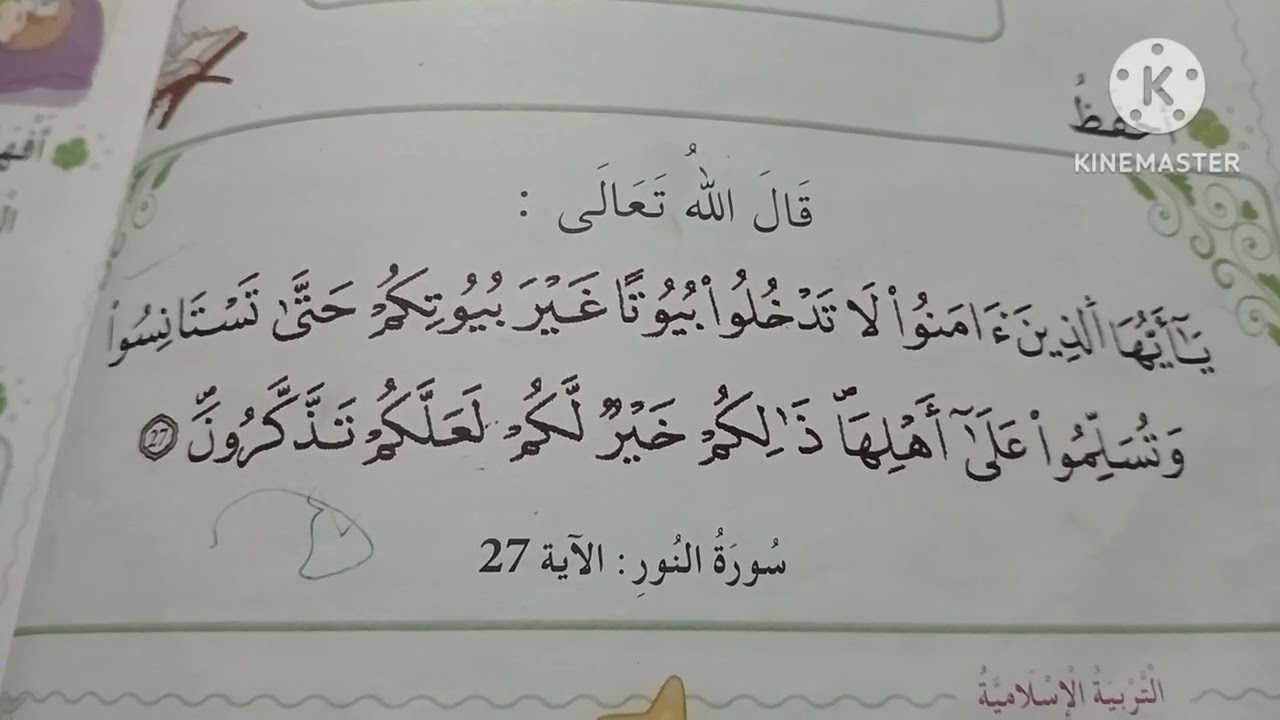 KINEMASTER
قَالَ اللهُ تَعَالَى :
يَٰٓأَيُّهَا اَ۬لذِينَ ءَامَنُواْ لَا تَدْخُلُواْ بُيُوتًا غَيْرَ بُيُوتِكُمْ حَتَّىٰ تَسْتَانِسُواْ
وَتُسَلِّمُواْ عَلَىٰٓ أَهْلِهَاۖ ذَٰلِكُمْ خَيْرٞ لَّكُمْ لَعَلَّكُمْ تَذَّكَّرُونَۖ 27
سُورَةُ النُورِ: الآية 27
التَّرْبِيَةُ الْإِسْلَامِيَّةُ